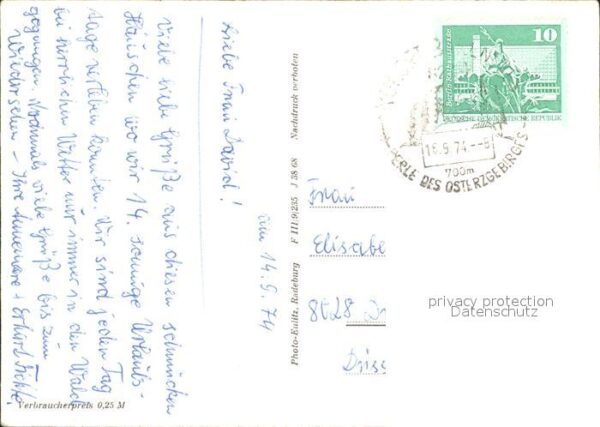 am 14.9.74
Liebe Frau David!
Viele liebe Grüße aus diesem schmucken
Häuschen wo wir 14 sonnige Urlaubs-
tage verleben konnten. Wir sind jeden Tag
bei herrlichem Wetter nur immer in den Wald
gegangen. Nochmals viele Grüße bis zum
Wiedersehen – Ihre Annemarie + Erhart
Verbraucherpreis 0,25 M
Photo-Eulitz, Radeburg F III/9/235 J 58 68 Nachdruck verboten
10
DEUTSCHE DEMOKRATISCHE REPUBLIK
16.9.74.--8
700m
PERLE DES OSTERZGEBIRGES
Frau
Elisabe
8028 Dr
Driss
privacy protection
Datenschutz